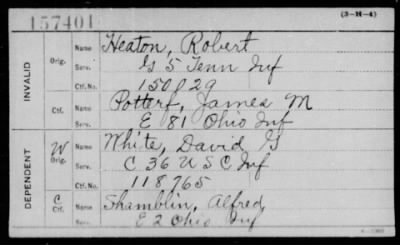 157401 (3-H-4)
INVALID
Orig. Name Heaton, Robert
Serv. G 5 Tenn Inf
Ctf. No. 150129
Ctf. Name Potterf, James M
Serv. E 81 Ohio Inf
DEPENDENT
W Orig. Name White, David G
Serv. C 36 U S C Inf
Ctf. No. 118765
C Ctf. Name Shamblin, Alfred
Serv. E 2 Ohio Inf